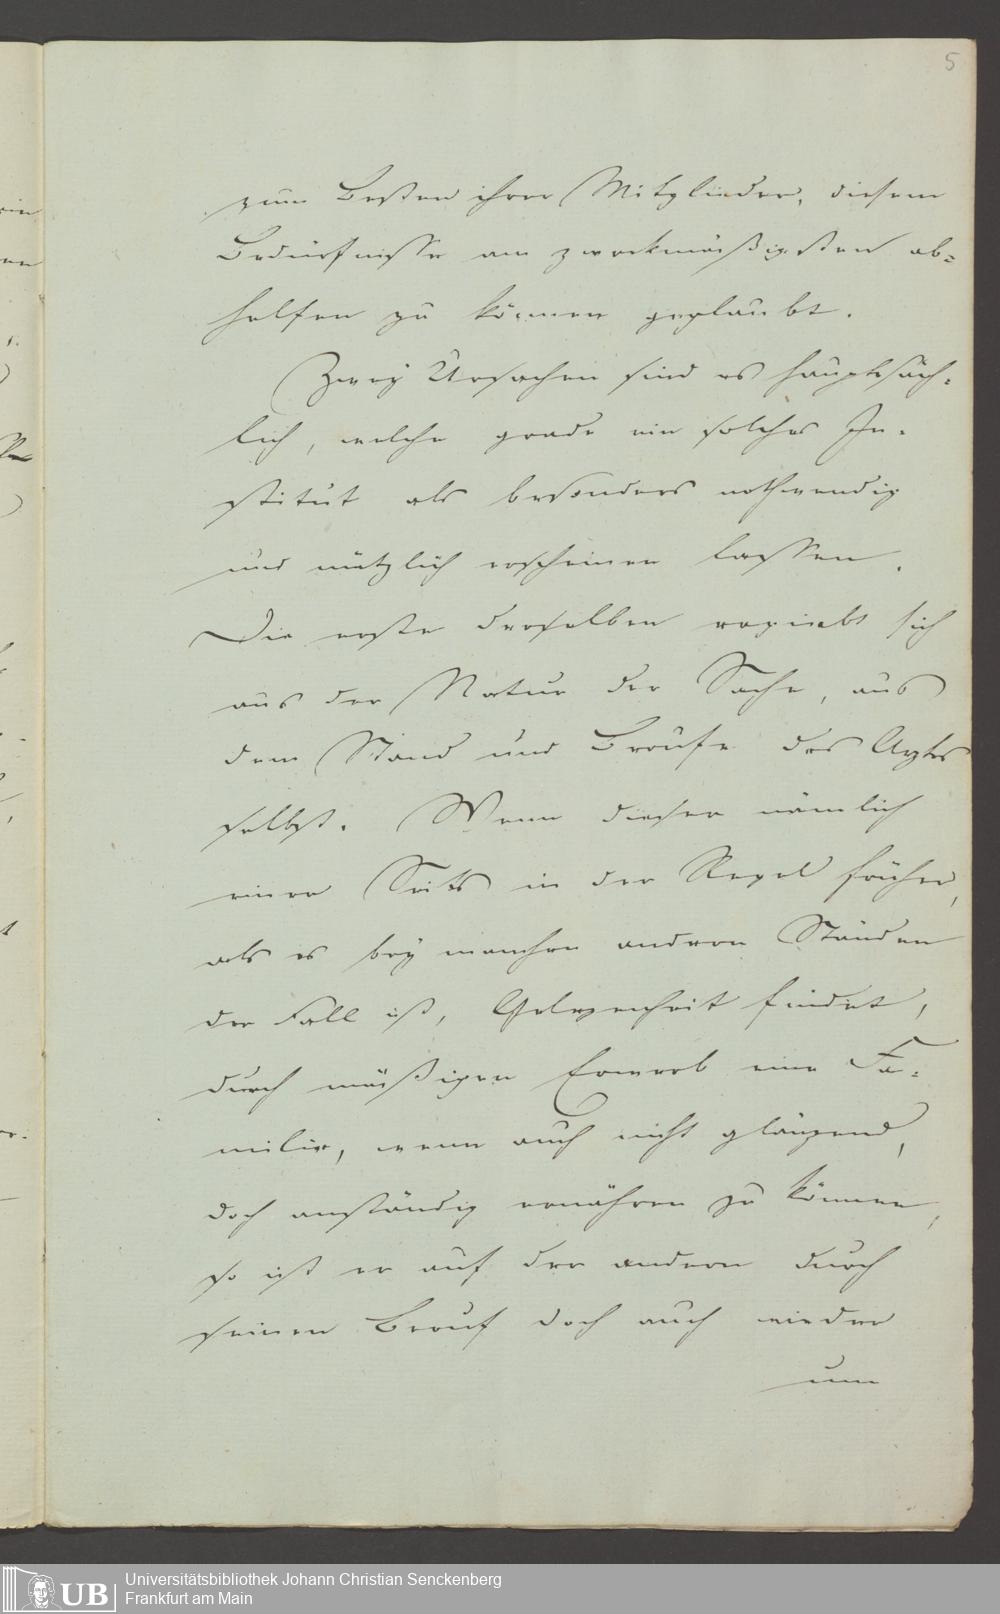 5
zum Besten ihrer Mitglieder, diesem
Bedürfnisse am zweckmäßigsten ab=
helfen zu können geglaubt.
Zwey Ursachen sind es hauptsäch=
lich, welche grade ein solches In=
stitut als besonders nothwendig
und nützlich erscheinen lassen.
Die erste derselben ergiebt sich
aus der Natur der Sache, aus
dem Stand und Berufe des Arztes
selbst. Wenn dieser nämlich
einer Seits in der Regel früher,
als es bey manchen andren Ständen
der Fall ist, Gelegenheit findet,
durch mäßigen Erwerb eine Fa=
milie, wenn auch nicht glänzend,
doch anständig ernähren zu können,
so ist er auf der andern durch
seinen Beruf doch auch wieder
um
UB
Universitätsbibliothek Johann Christian Senckenberg
Frankfurt am Main